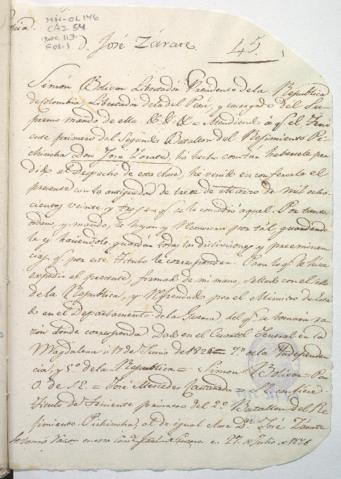 MN-OL 146
CAJ 54
DOC 113
FOL 1
D. José Zárate 45.
Simón Bolivar Libertador Presidente de la Republica
de Colombia, Libertador de la del Perú, y encargado del Su-
premo mando de ella &. &. &. = Atendiendo á q.e el Teni-
ente primero del Segundo Batallon del Regimiento Pi-
chincha Don José Zarate, ha hecho constar haber
el despacho de esta clase, he venido en conferirle el
presente con la antiguedad de de mil ocho-
cientos veinte y tres, en q.e se le concedió aquel. Por tanto
ordeno, y mando, le hayan y reconozcan por tal, guardando-
le y haciendole, guardar todas las distinciones y preeminen-
cias q.e por este titulo le corresponden. Para lo q.e le hice
expedir el presente, firmado de mi mano, sellado con el sello
de la Republica, y refrendado por el Ministro de Esta-
do en el Departamento de la Guerra del q.e se tomará ra-
zon donde corresponda. Dado en el Cuartel Jeneral en la
Magdalena á 17 de Junio de 1826 = 7.o de la Independen-
cia, y 5.o de la Republica = Simon Bolivar = P.r
O. de S.E. = José = Confiere
titulo de Teniente primero del 2.o Batallon del Re-
jimiento Pichincha, al de igual clase D. José Zarate
Tomose Razon en esta Guerra en 27 de Julio de 1826